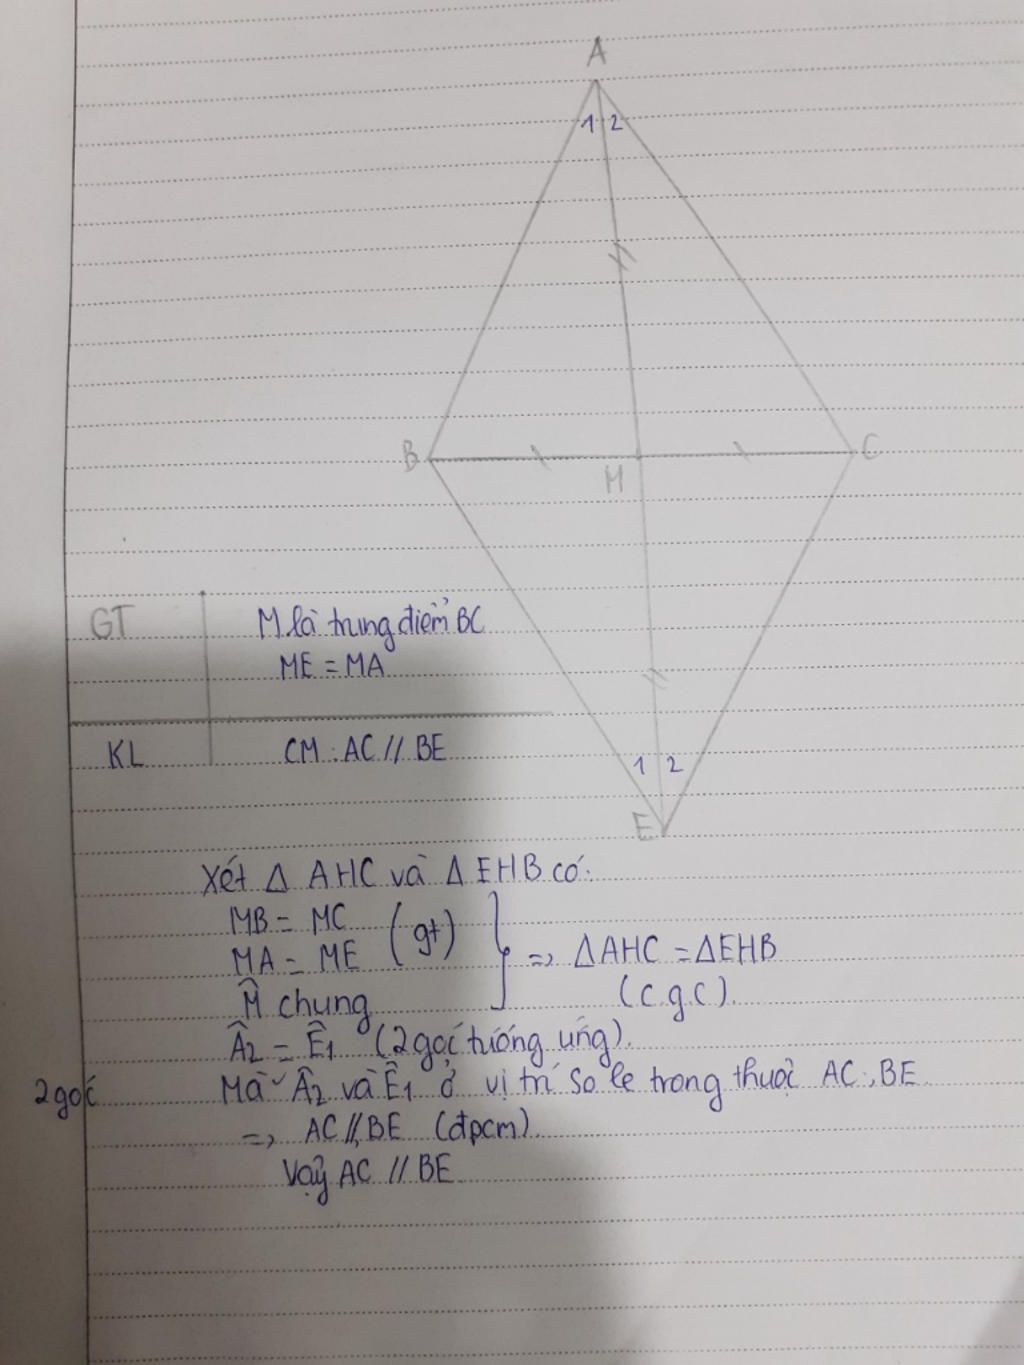 A
1 2
B
M
C
GT
M là trung điểm BC
ME = MA
KL
CM : AC // BE
1 2
E
Xét Δ AHC và Δ EHB có:
MB = MC
MA = ME
(gt)
M̂ chung
=> ΔAHC = ΔEHB
(c.g.c).
Â2 = Ê1 (2 góc tương ứng).
2 góc
Mà ˇ Â2 và Ê1 ở vị trí so le trong thuộc AC, BE
=> AC // BE (đpcm)
Vậy AC // BE